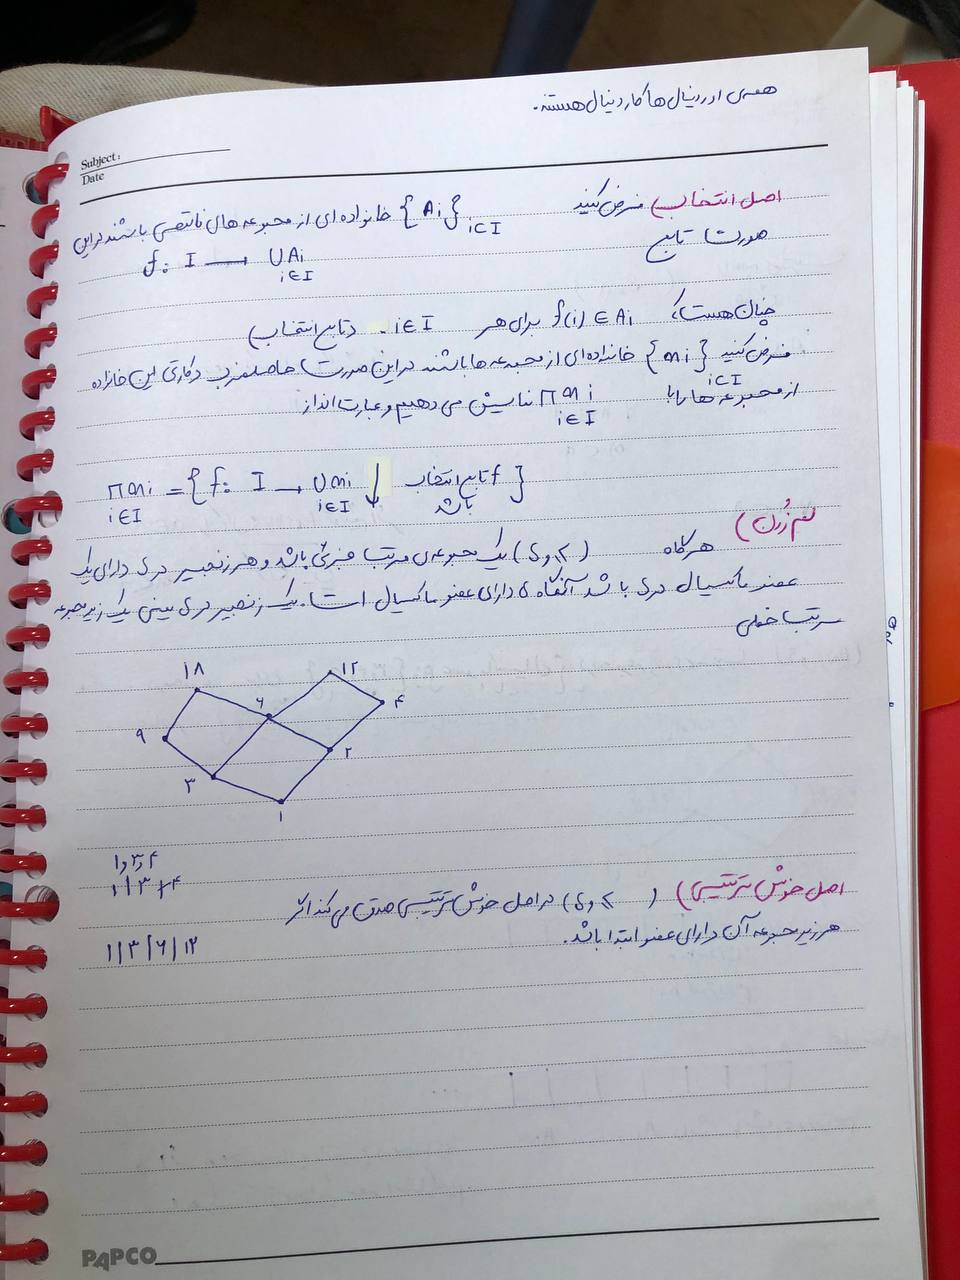 همه‌ی اوردینال ها کاردینال هستند.
Subject:
Date
اصل انتخاب) فرض کنید {Ai} i∈I خانواده ای از مجموعه های ناتهی باشند در این
صورت تابع f: I → ∪Ai i∈I
چنان هست که f(i) ∈ Ai برای هر i∈I. (تابع انتخاب)
فرض کنید {mi} i∈I خانواده ای از مجموعه ها باشند در این صورت حاصلضرب دکارتی این خانواده
از مجموعه ها را با Πmi i∈I نمایش می دهیم و عبارت انداز
Πmi i∈I = {f: I → ∪mi i∈I ↓ f تابع انتخاب باشد}
لم زُرن) هرگاه (S و ≤) یک مجموعه‌ی مرتب جزئی باشد و هر زنجیر در S دارای یک
عضو ماکسیمال در S باشد آنگاه S دارای عضو ماکسیمال است. یک زنجیر در S یعنی یک زیرمجموعه
مرتب خطی
۱۸
۱۲
۶
۴
۹
۲
۳
۱
۱ و ۳ و ۴
۱ | ۳ ∤ ۴
اصل خوش ترتیبی) (S و ≤) در اصل خوش ترتیبی صدق می کند اگر
هر زیر مجموعه آن دارای عضو ابتدا باشد.
۱ | ۳ | ۶ | ۱۲
PAPCO